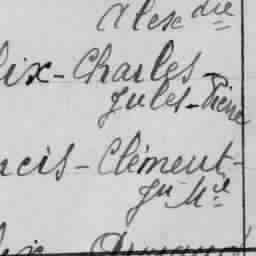 Alex dre
lix - Charles -
Jules - Pierre
ncis - Clément -
Jn - Mie